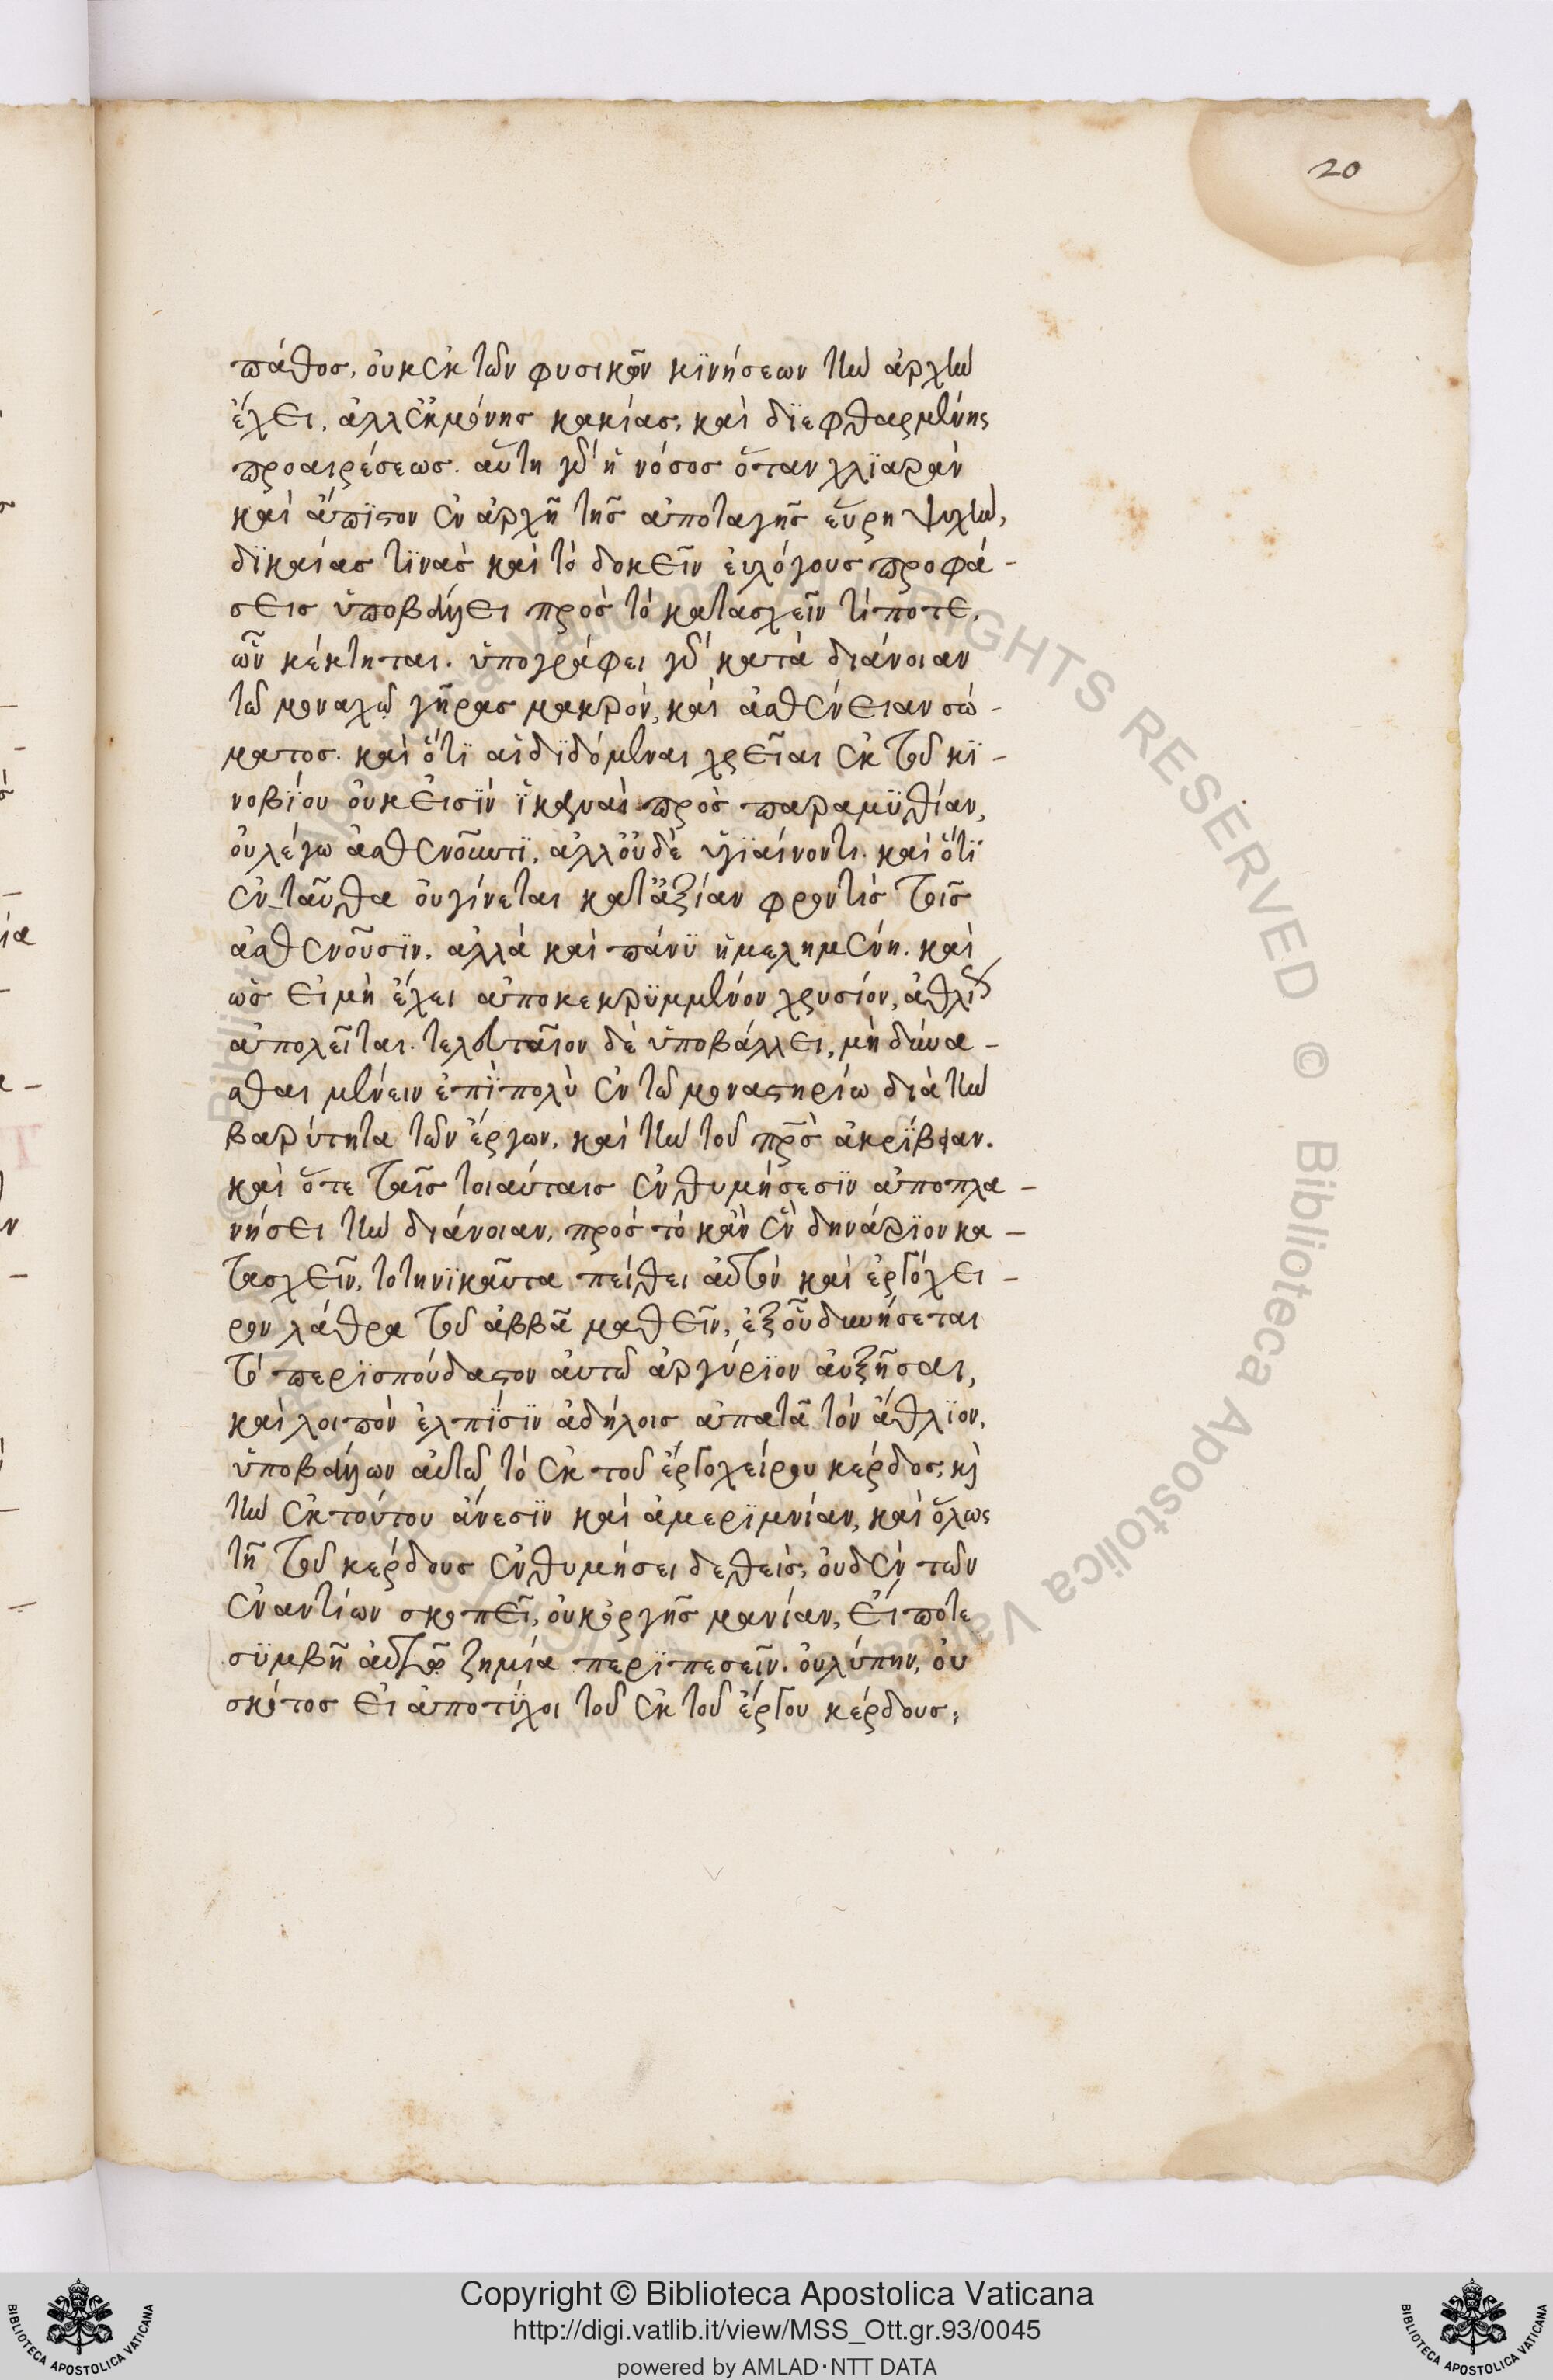 20
πάθος, οὐκ ἐκ τῶν φυσικῶν κϊνήσεων τὴν ἀρχὴν
ἔχει, ἀλλ' ἐκ μόνης κακίας, καὶ δϊεφθαρμένης
προαιρέσεως. αὕτη γὰρ ἡ νόσος ὅταν χλϊαρὰν
καὶ ἄπϊστον ἐν ἀρχῇ τῆς ἀποταγῆς εὕρη ψυχὴν,
δϊκαίας τϊνὰς καὶ τὸ δοκεῖν εὐλόγους προφά-
σεις ὑποβάλλει πρὸς τὸ κατασχεῖν τί ποτε,
ὧν κέκτηται. ὑπογράφει γὰρ κατὰ διάνοιαν
τῶ μοναχῷ γῆρας μακρὸν, καὶ ἀσθένειαν σώ-
ματος. καὶ ὅτϊ αἱ δϊδόμεναι χρεῖαι ἐκ τοῦ κϊ-
νοβϊου οὐκ εἰσϊν ϊκαναὶ πρὸς παραμϋθίαν,
οὐ λέγω ἀσθενοῦντϊ, ἀλλ' οὐδὲ ὑγϊαίνοντι. καὶ ὅτϊ
ἐνταῦθα οὐ γίνεται κατ' ἀξίαν φροντὶς τοῖς
ἀσθενοῦσϊν, ἀλλὰ καὶ πάνϋ ἠμελημένη. καὶ
ὡς εἰ μὴ ἔχει ἀποκεκρϋμμένον χρυσίον, ἀθλίως
ἀπολεῖται. τελευταῖον δὲ ὑποβάλλει, μὴ δύνα-
σθαι μένειν ἐπϊπολὺ ἐν τῶ μοναστηρίω διὰ τὴν
βαρύτητα τῶν ἔργων, καὶ τὴν τοῦ πρς ἀκρίβειαν.
καὶ ὅτε ταῖς τοιαύταις ἐνθυμήσεσϊν ἀποπλα-
νήσει τὴν διάνοιαν, πρὸς τὸ κἂν ἓν δηνάρϊον κα-
τασχεῖν, τοτηνϊκαῦτα πείθει αὐτὸν καὶ ἐργόχει-
ρον λάθρα τοῦ ἀββᾶ μαθεῖν, ἐξ οὗ δυνήσεται
τὸ περϊσπούδαστον αὐτῶ ἀργύρϊον αὐξῆσαι,
καὶ λοιπὸν ἐλπίσϊν ἀδήλοις ἀπατᾶ τὸν ἄθλϊον,
ὑποβάλλων αὐτῶ τὸ ἐκ τοῦ ἐργοχείρου κέρδος, κὶ
τὴν ἐκ τούτου ἄνεσϊν καὶ ἀμερϊμνίαν, καὶ ὅλως
τῆ τοῦ κέρδους ἐνθυμήσει δεθεὶς, οὐδὲν τῶν
ἐναντίων σκοπεῖ, οὐκ ὀργῆς μανίαν, εἴ ποτε
σϋμβῆ αὐτῶ ζημία περϊπεσεῖν. οὐ λύπην, οὐ
σκότος εἰ ἀποτύχοι τοῦ ἐκ τοῦ ἔργου κέρδους,
Copyright © Biblioteca Apostolica Vaticana
http://digi.vatlib.it/view/MSS_Ott.gr.93/0045
powered by AMLAD·NTT DATA